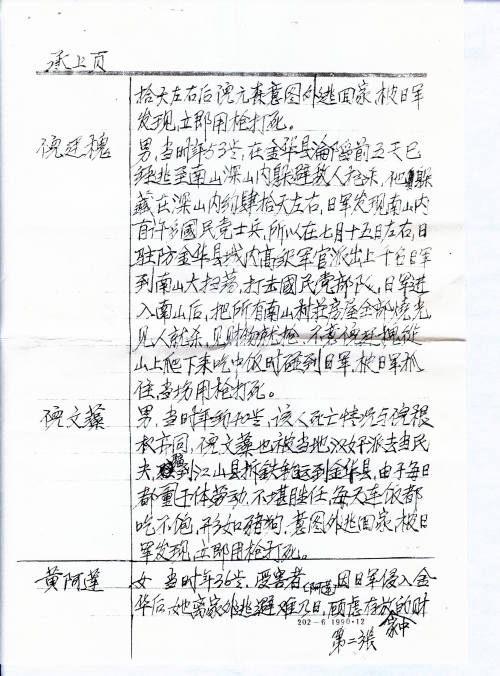 承上页
拾天左右后倪元森意图外逃回家,被日军
发现,立即用枪打死。
倪廷槐
男,当时年53岁,在金华县沦陷前五天已
经逃至南山深山内躲避敌人杀,他躲
藏在深山内约肆拾天左右,日军发现南山内
有许多國民党士兵,所以在七月十五日左右,日
驻防金华县城内高级军官派出上千名日军
到南山大扫荡,打击國民党部队,日军进
入南山后,把所有南山村庄房屋全部烧光
见人就杀,见财物就抢,不意倪廷槐从
山上爬下来吃中饭时碰到日军,被日军抓
住当场用枪打死。
倪文藻
男,当时年约40岁,该人死亡情况与倪根
松亦同,倪文藻也被当地汉奸派去当民
夫,到江山县拆铁轨运到金华县,由于每日
都重于体劳动,不堪胜任,每天连饭都
吃不饱,形如猪狗,意图外逃回家,被日
军发现,立即用枪打死。
黄阿莲
女 当时年36岁 受害者(阿莲)因日军侵入金
华后,她离家外逃避难几日,顾虑存放的财
家中
202-6 1990·12
第二张